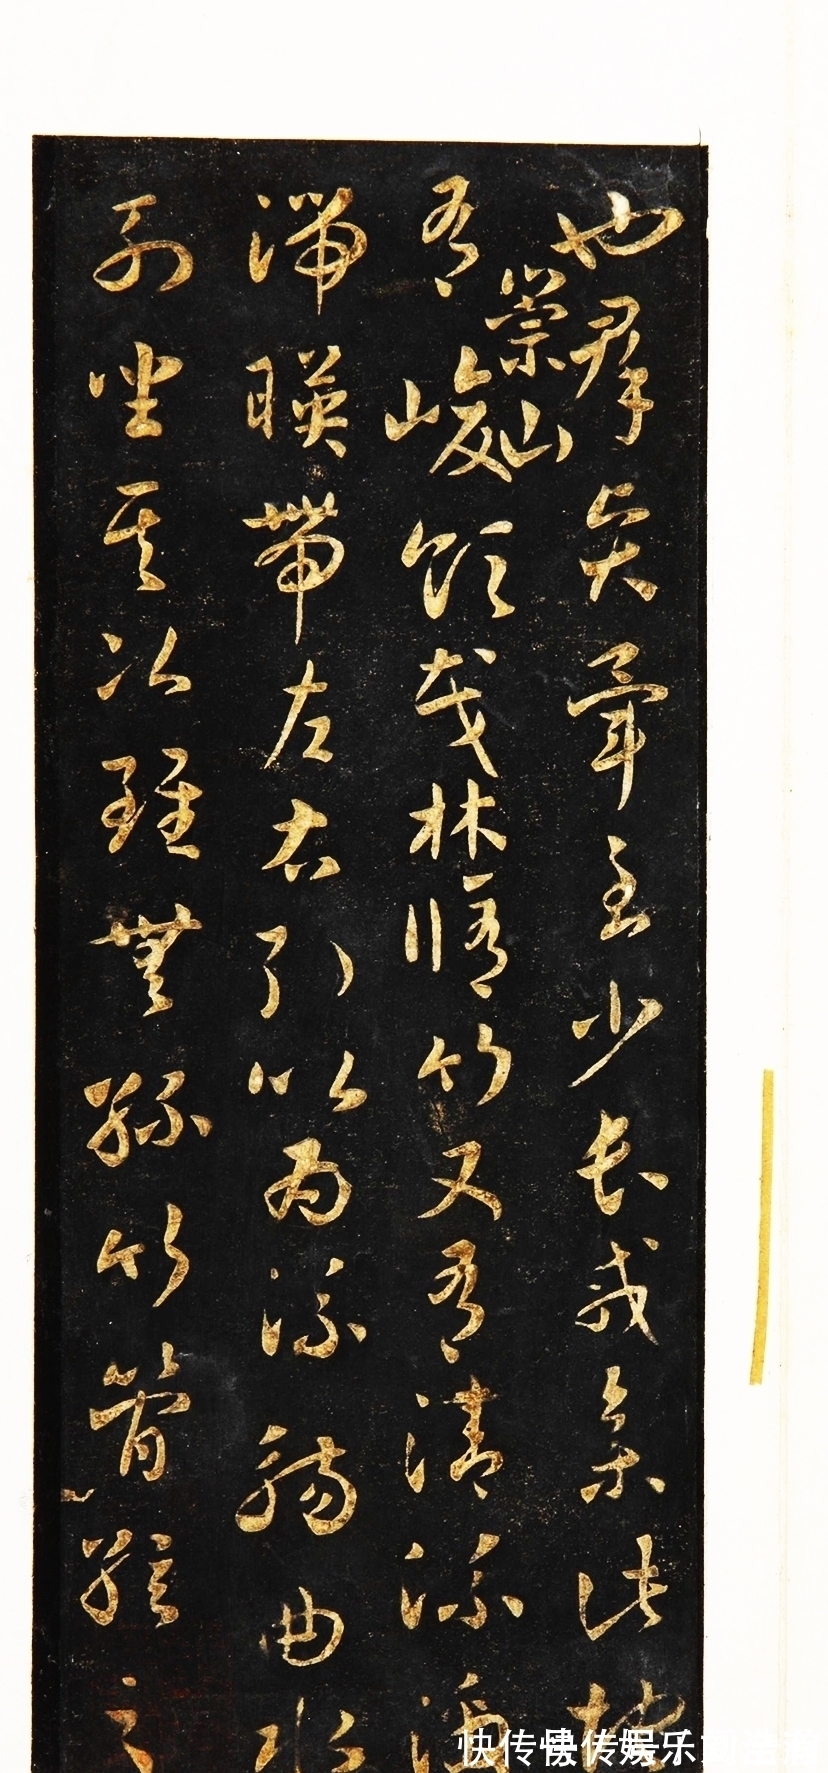 也羣賢畢至少長咸集此地
崇山
有峻領茂林脩竹又有清流激
湍暎帶左右引以為流觴曲水
列坐其次雖無絲竹管絃之